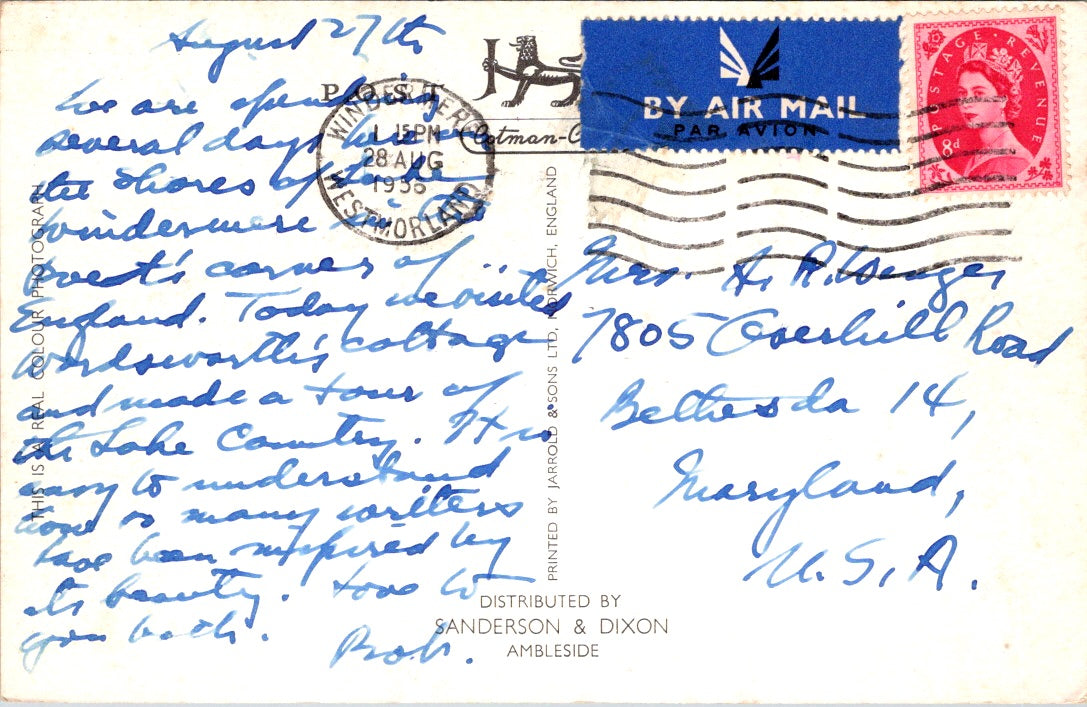 August 27th
We are spending
several days here on
the shores of Lake
Windermere in the
Poet's corner of
England. Today we visited
Wordsworth's cottage
and made a tour of
the Lake Country. It is
easy to understand
how so many writers
have been inspired by
its beauty. Love to
you both.
Bob.
POST
WINDERMERE
1 15PM
28 AUG
WESTMORLAND
BY AIR MAIL
PAR AVION
POSTAGE REVENUE
8d
Mrs. H. R.
7805 Overhill Road
Bethesda 14,
Maryland,
U.S.A.
THIS IS A REAL COLOUR PHOTOGRAPH
PRINTED BY JARROLD & SONS LTD, NORWICH, ENGLAND
DISTRIBUTED BY
SANDERSON & DIXON
AMBLESIDE